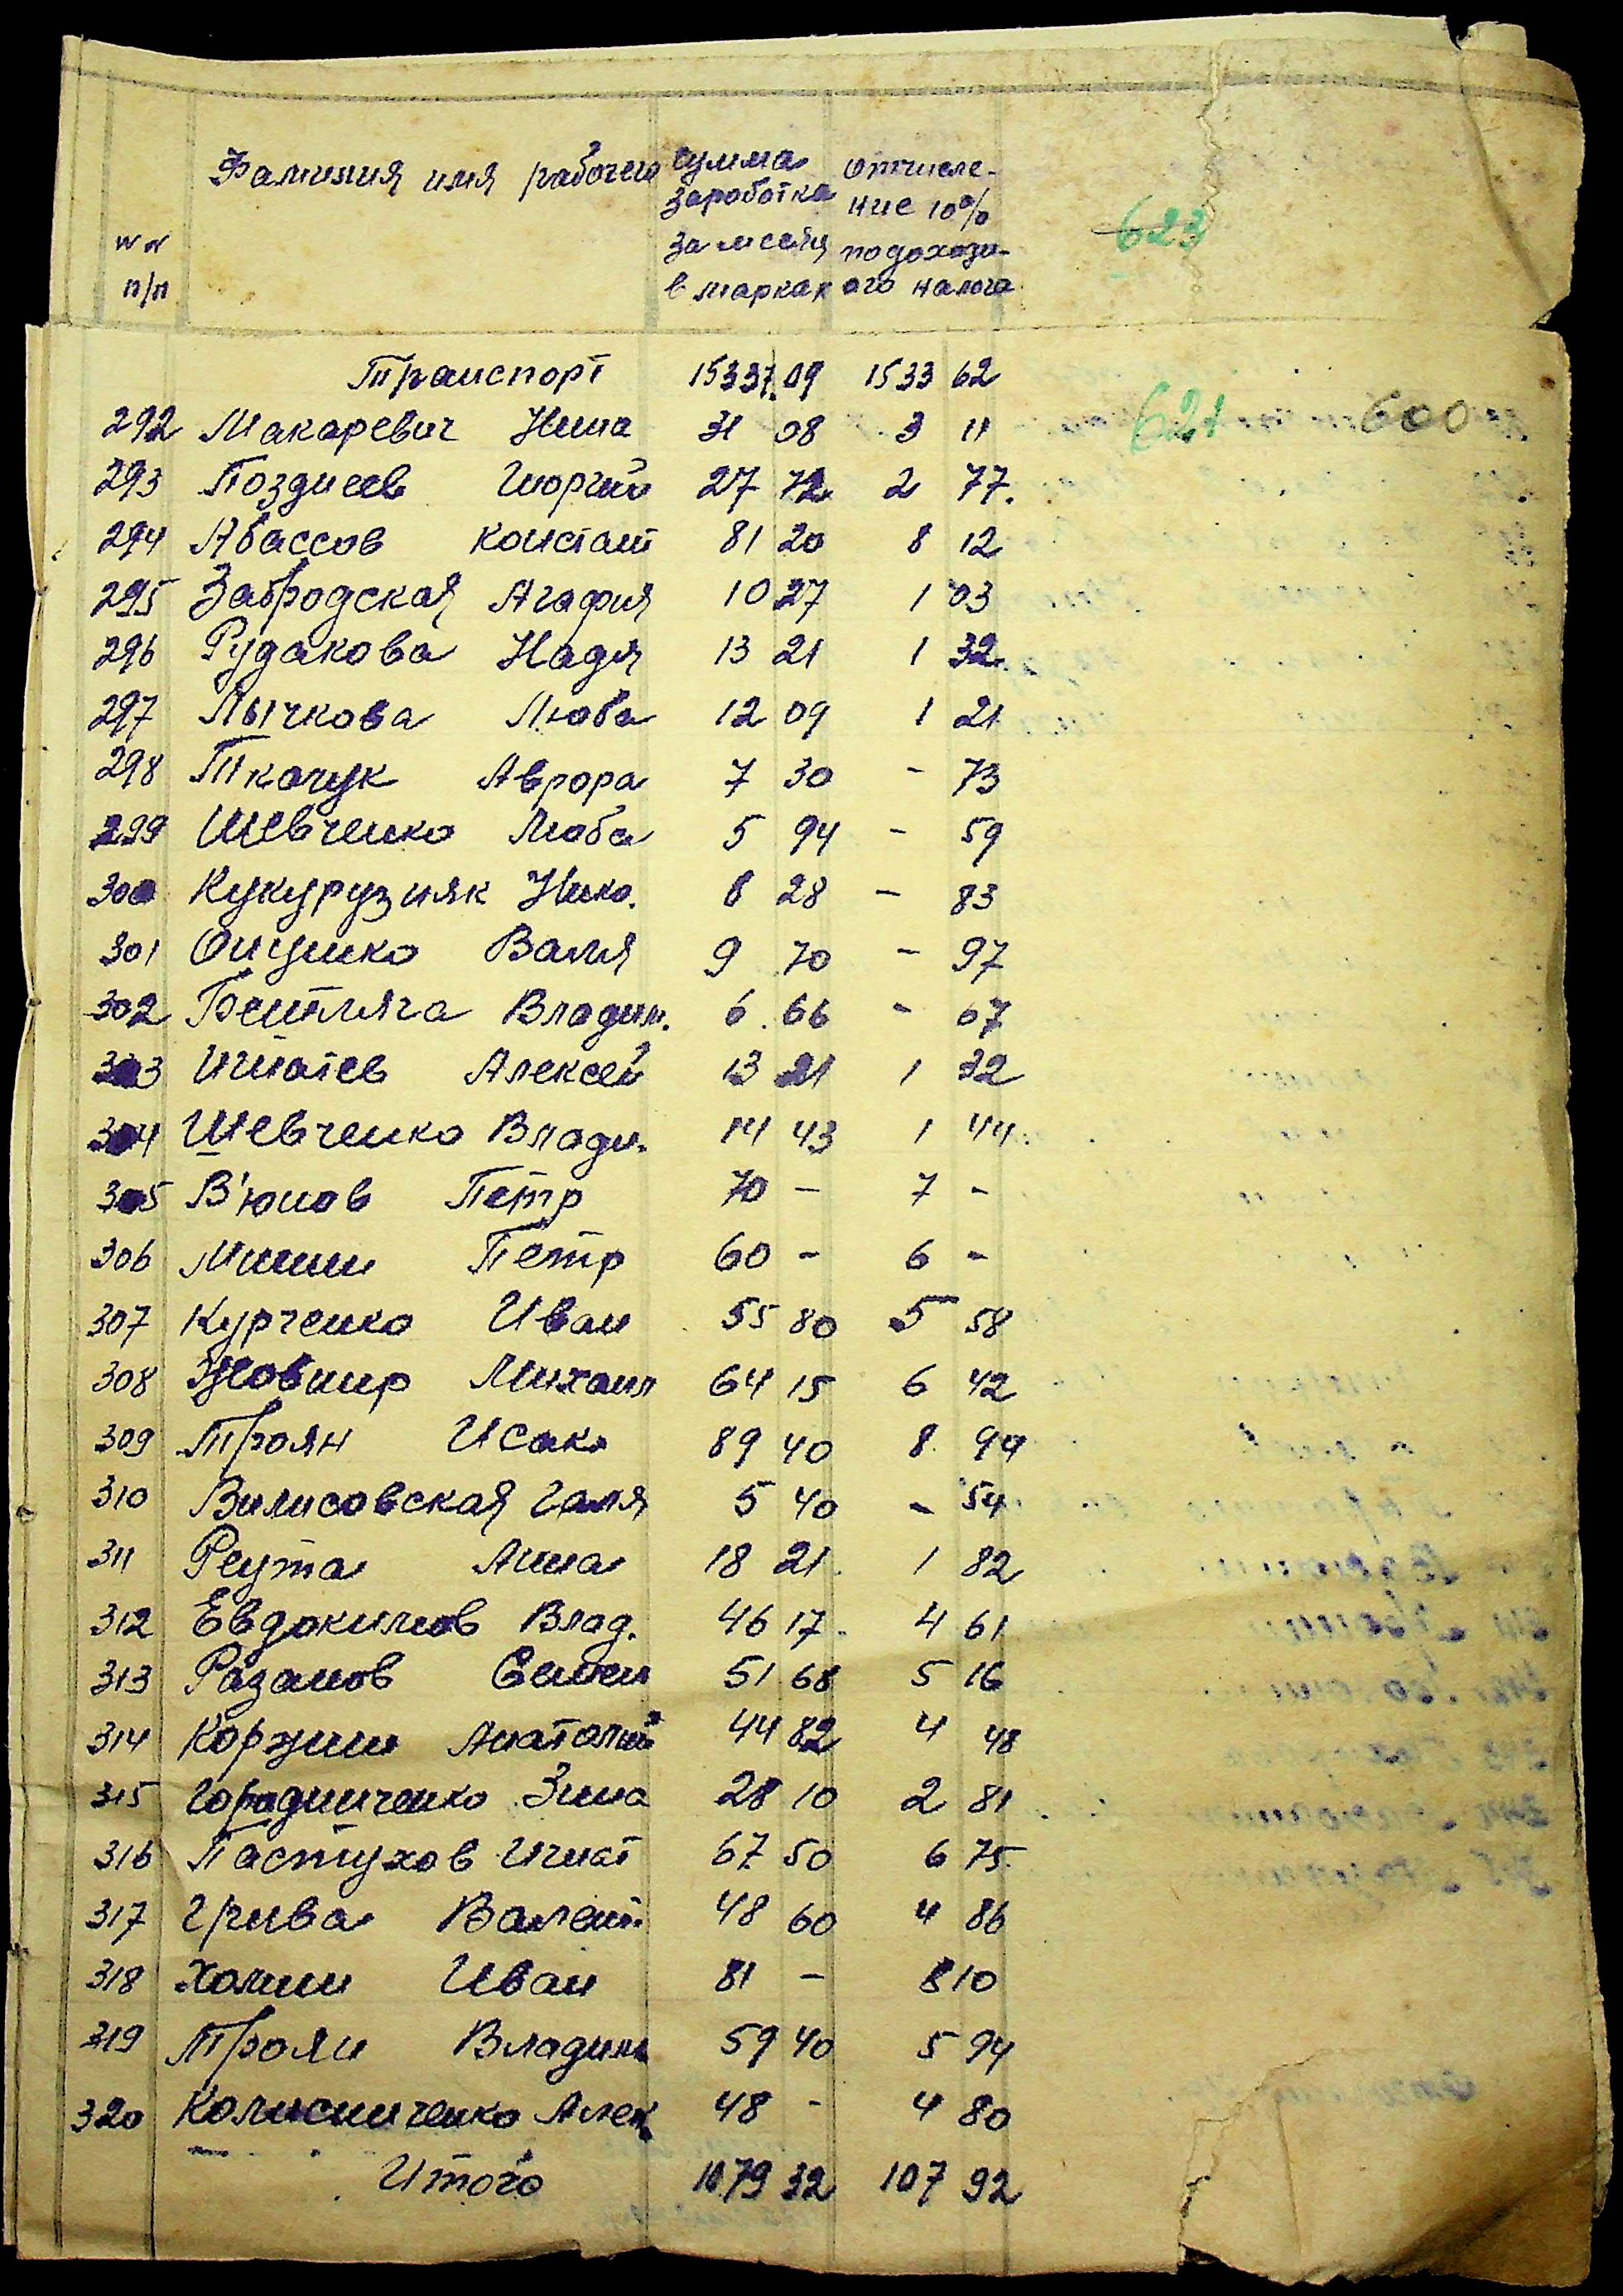 №№ п/п
Фамилия имя рабочего
Сумма заработка за месяц в марках
Отчисление 10% подоходного налога
623
Транспорт 15337.09 1533 62
621 600
292 Макаревич Нина 31 08 3 11
293 Позднеев Георгий 27 72 2 77.
294 Абассов Констант 81 20 8 12
295 Забродская Агафия 10 27 1 03
296 Рудакова Надя 13 21 1 32
297 Лычкова Люба 12 09 1 21
298 Ткачук Аврора 7 30 - 73
299 Шевченко Люба 5 94 - 59
300 Кукурузняк Нико. 8 28 - 83
301 Онущенко Валя 9 70 - 97
302 Владим. 6 66 - 67
303 Игнатев Алексей 13 21 1 32
304 Шевченко Влади. 14 43 1 44
305 В'юнов Петр 70 - 7 -
306 Минин Петр 60 - 6 -
307 Курченко Иван 55 80 5 58
308 Жовнир Михаил 64 15 6 42
309 Троян Исако 89 40 8 94
310 Вилисовская Галя 5 40 - 54
311 Реута Анна 18 21 1 82
312 Евдокимов Влад. 46 17 4 61
313 Разанов Семен 51 68 5 16
314 Коржин Анатолий 44 82 4 48
315 Городниченко Зина 28 10 2 81
316 Пастухов Игнат 67 50 6 75
317 Грива Валент. 48 60 4 86
318 Холин Иван 81 - 8 10
319 Троян Владим 59 40 5 94
320 Колисниченко Алек 48 - 4 80
Итого 1079 32 107 92